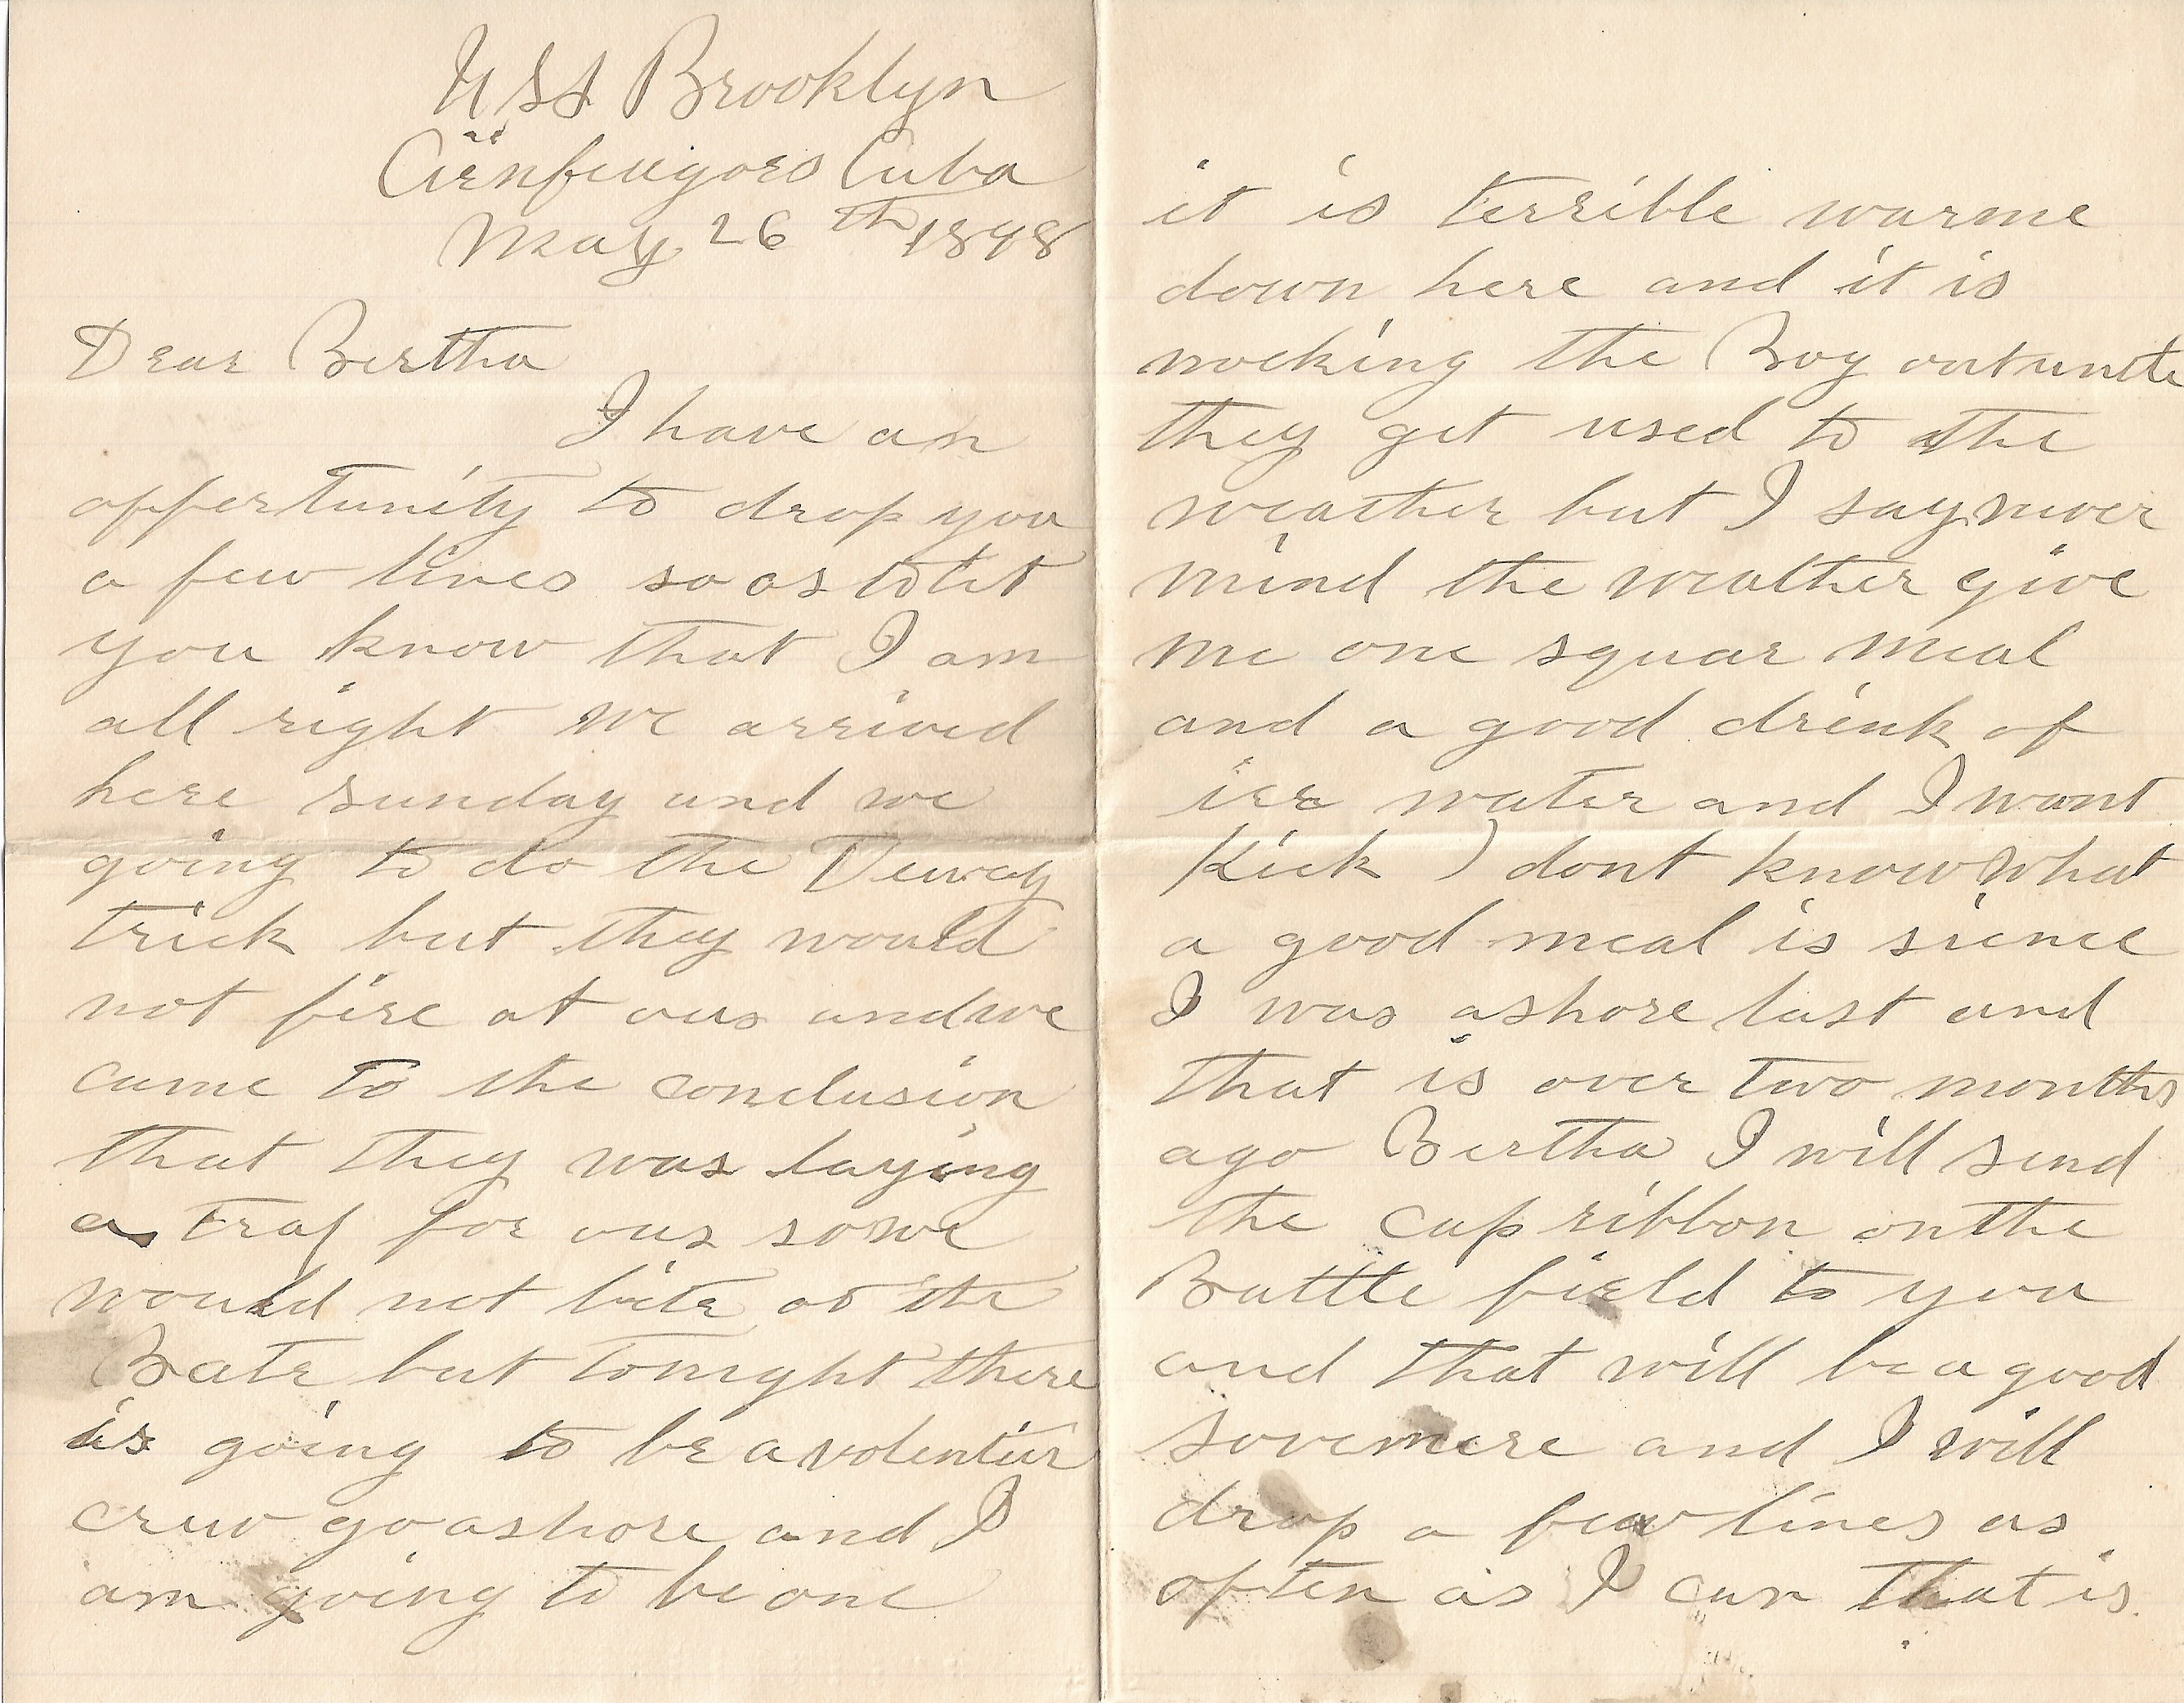 USS Brooklyn
Cienfeugoes Cuba
May 26th 1898
Dear Bertha
I have an
oppertunity to drop you
a few lines so as to let
you know that I am
all right we arrived
here sunday and we
going to do the Dewey
trick but they would
not fire at ous and we
came to the conclusion
that they was laying
a trap for ous so we
would not bite at the
Bate but tonight there
is going to be a volentier
crew go ashore and I
am going to be one
it is terrible warme
down here and it is
nocking the Boy out untle
they get used to the
weather but I say never
mind the weather give
me one squar meal
and a good drink of
ice water and I wont
Kick I dont know what
a good meal is sience
I was ashore last and
that is over two months
ago Bertha I will send
the cap ribbon on the
Battle field to you
and that will be a good
sovenere and I will
drop a few lines as
often as I can that is